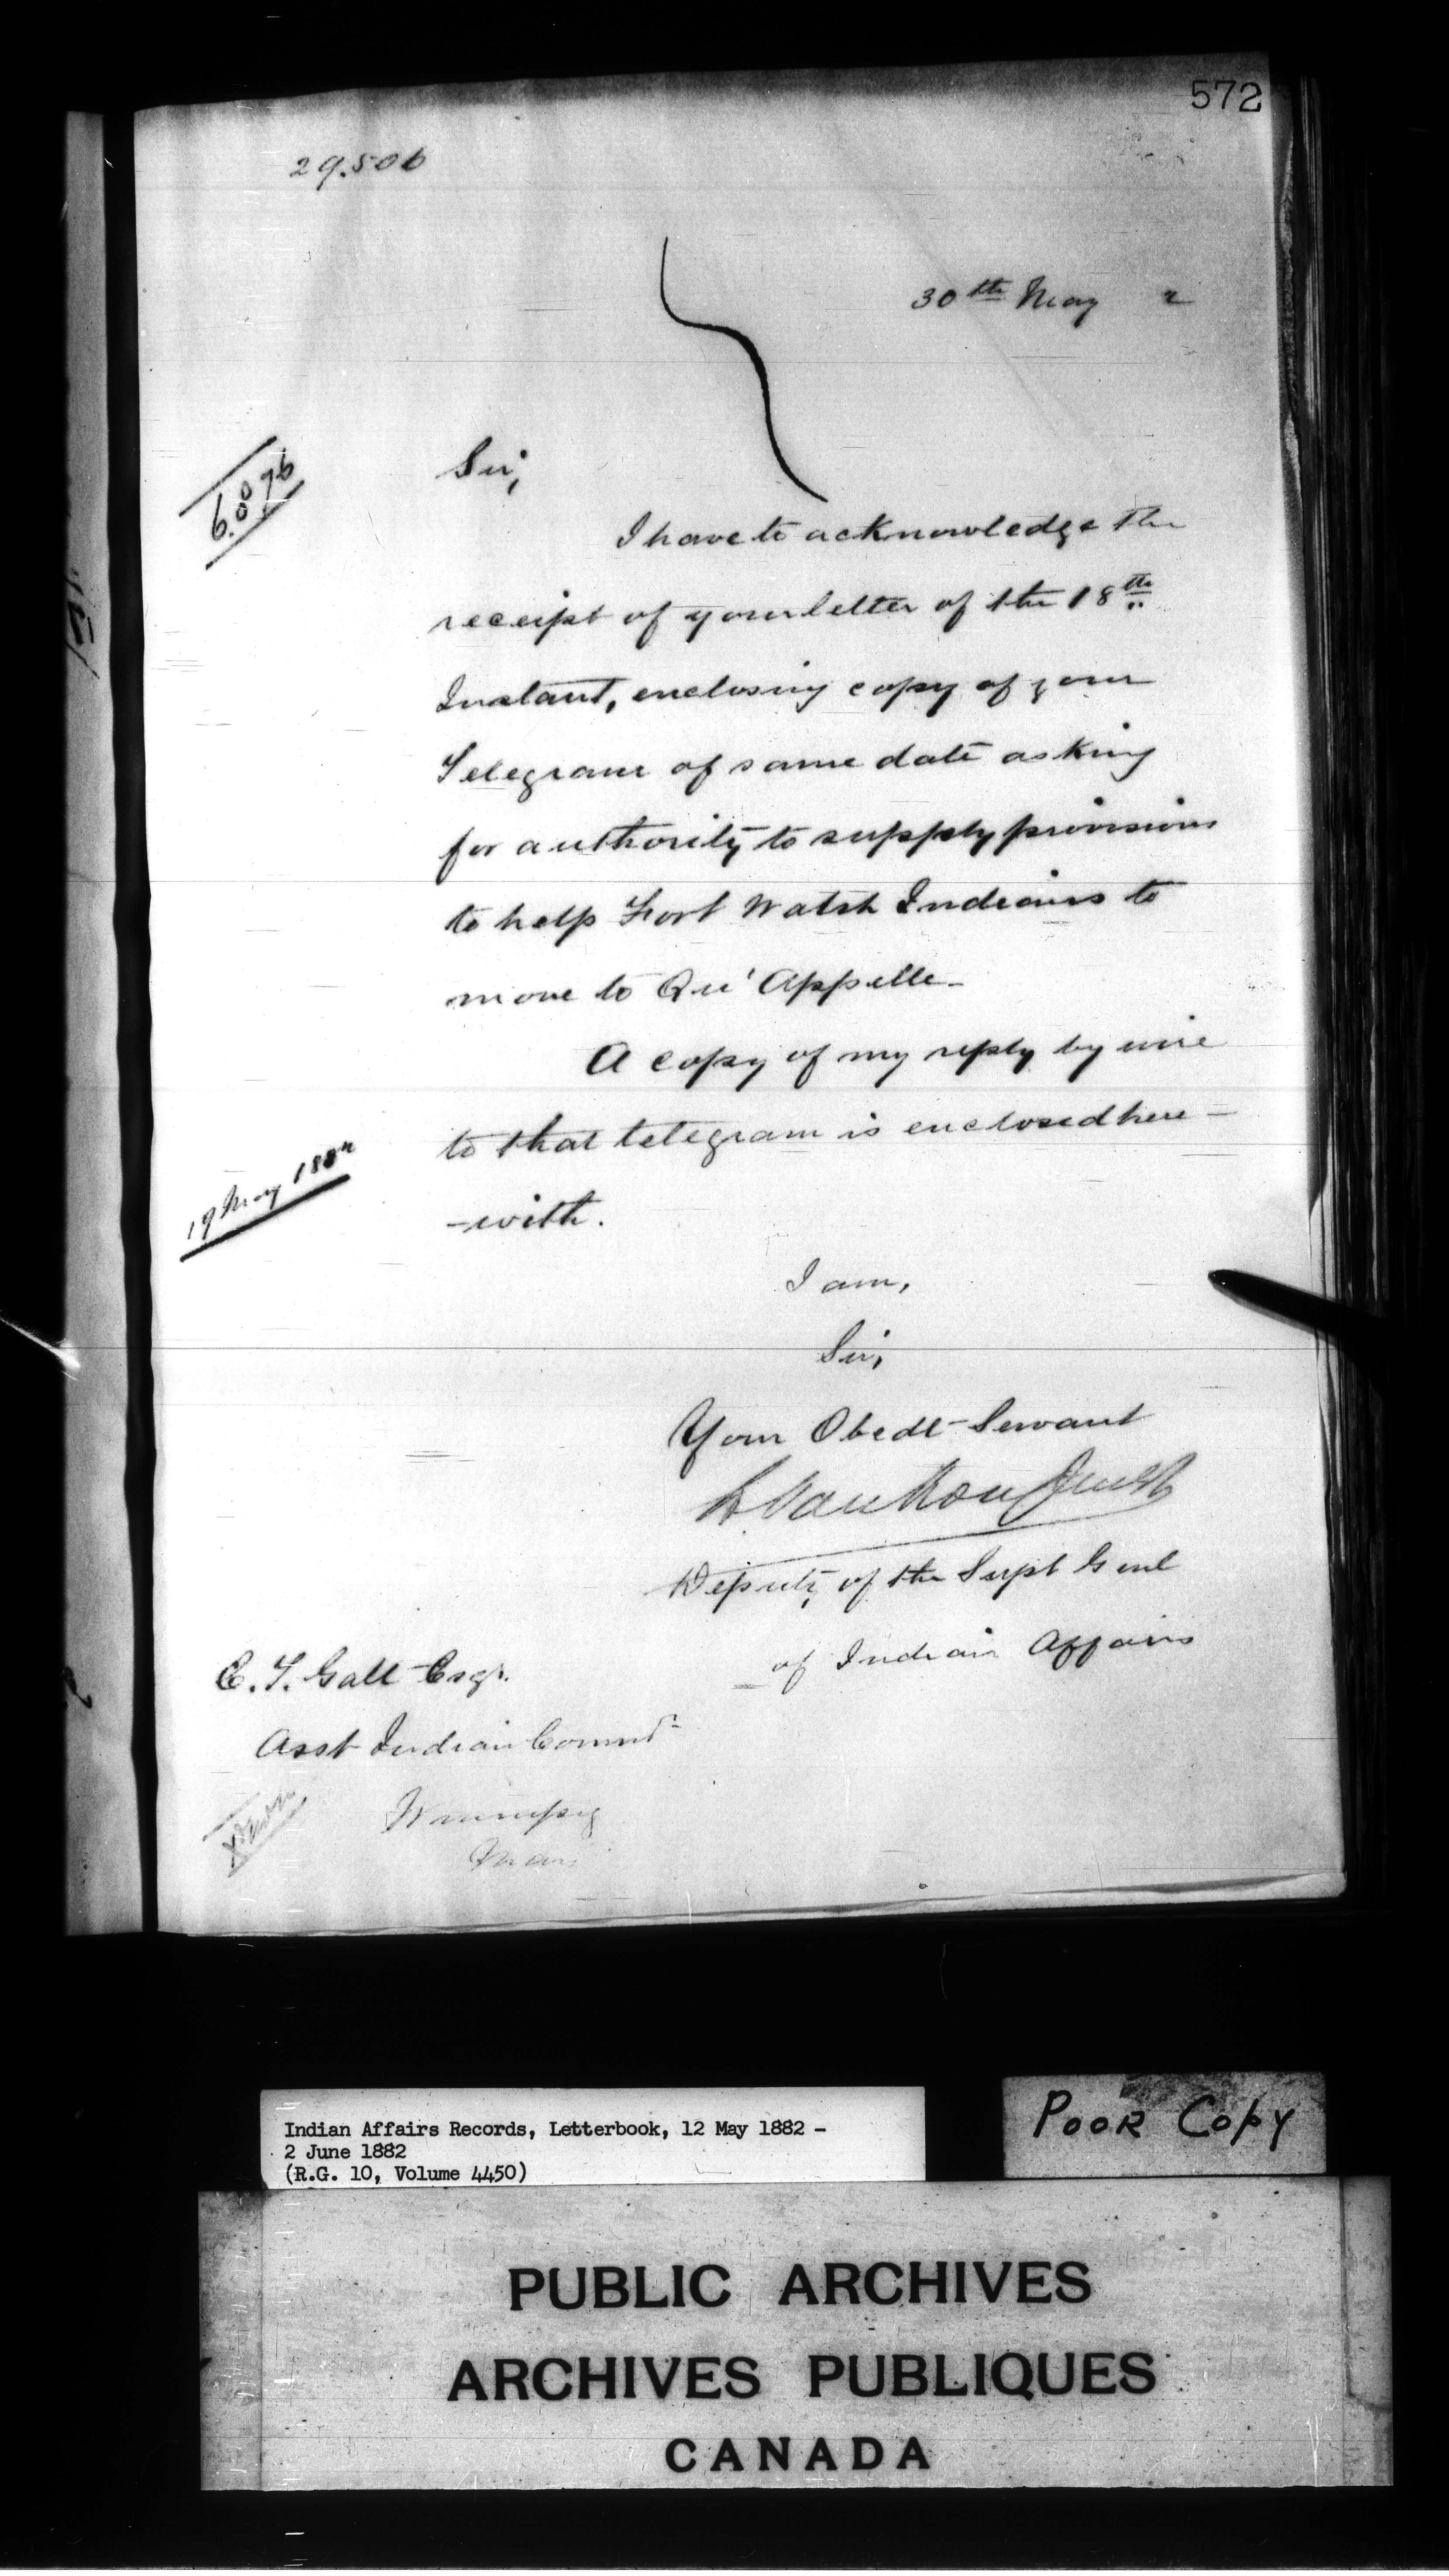 572
29.506
30th May 2
Sir,
I have to acknowledge the
receipt of your letter of the 18th
Instant, enclosing copy of your
Telegram of same date asking
for authority to supply provisions
to help Fort Walsh Indians to
move to Qu'Appelle-
A copy of my reply by wire
to that telegram is enclosed here-
19 May 1882
-with.
I am,
Sir,
Your Obedt Servant
L. VanKoughnet
Deputy of the Supt Genl
of Indian Affairs
E. T. Galt Esqr.
Asst Indian Commr
Winnipeg
Man
Indian Affairs Records, Letterbook, 12 May 1882 -
2 June 1882
(R.G. 10, Volume 4450)
POOR COPY
PUBLIC ARCHIVES
ARCHIVES PUBLIQUES
CANADA